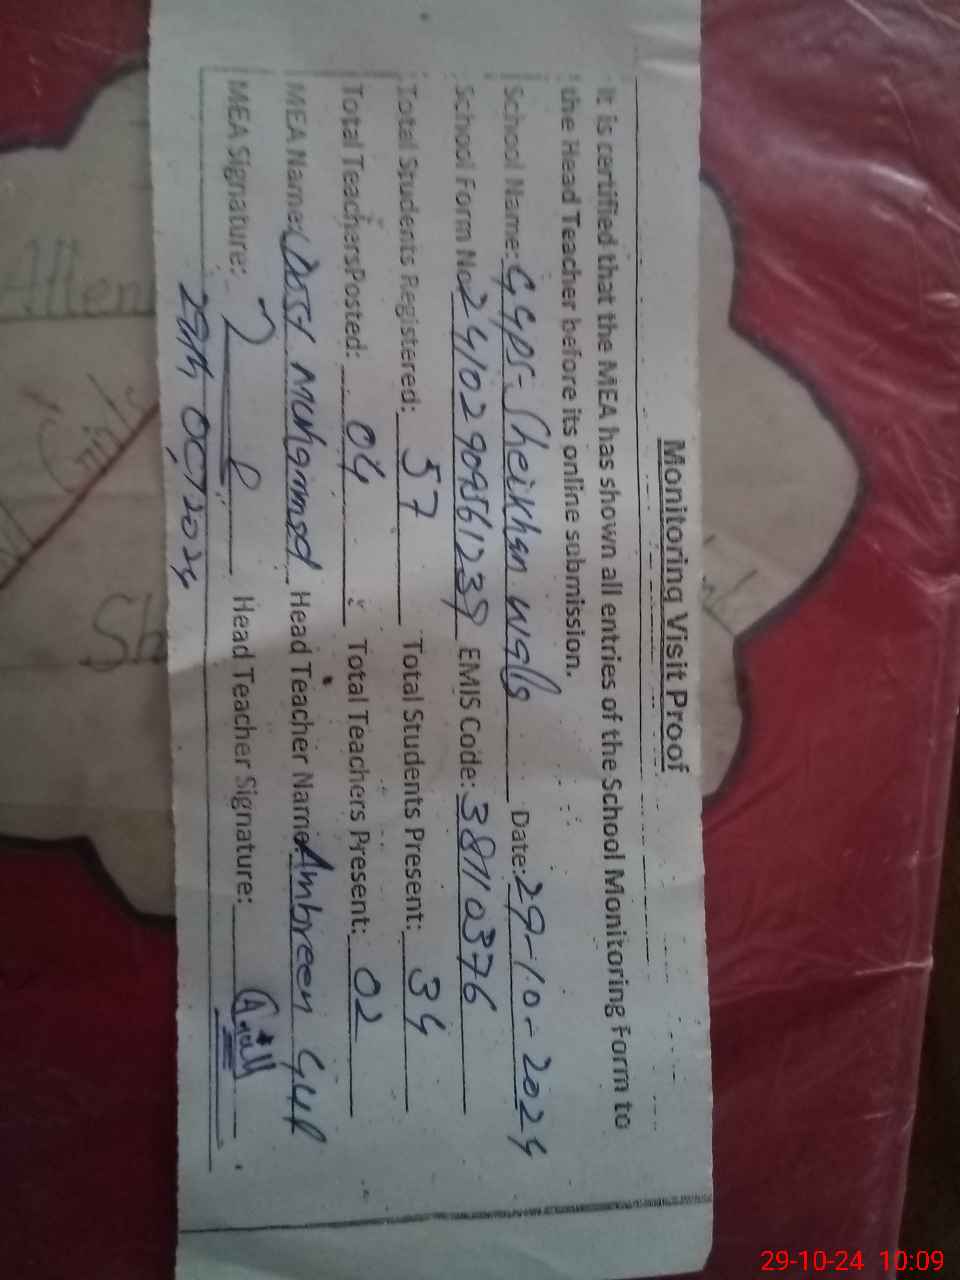 Monitoring Visit Proof
It is certified that the MEA has shown all entries of the School Monitoring Form to
the Head Teacher before its online submission.
School Name: GGPS- Sheikhan walls Date: 29-10-2024
School Form No: 24102909561239 EMIS Code: 38110376
Total Students Registered: 57 Total Students Present: 34
Total Teachers Posted: 04 Total Teachers Present: 02
MEA Name: Dost Muhammad Head Teacher Name: Ambreen Gul
MEA Signature: Head Teacher Signature:
29th OCT 2024
Atten
29-10-24 10:09